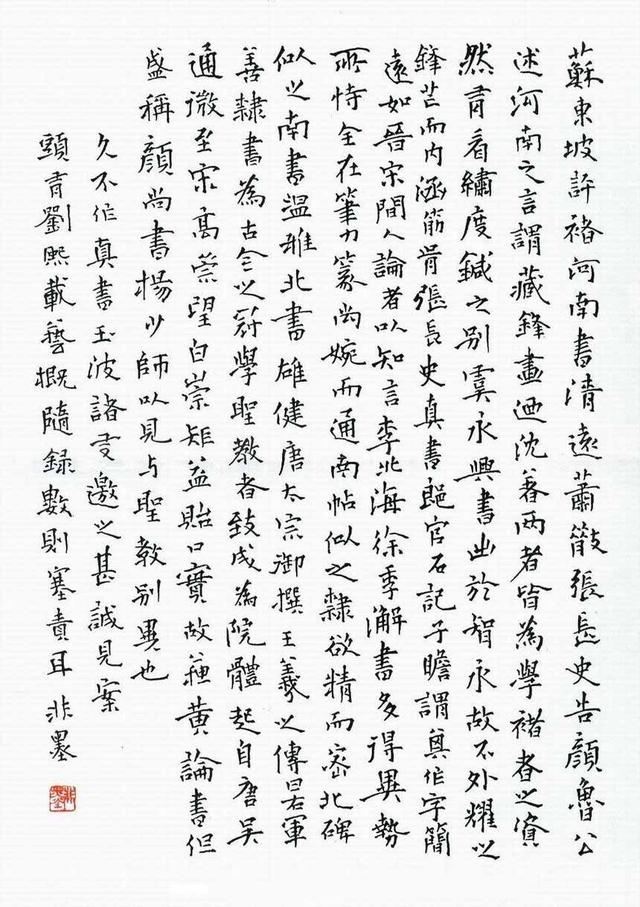 蘇東坡評褚河南書清遠蕭散張長史告顔魯公
述河南之言謂藏鋒畫迺沈着兩者皆為學褚者之資
然有看繡度鍼之別虞永興書出於智永故不外耀以
鋒芒而内涵筋骨張長史真書郎官石記子瞻謂其作字簡
遠如晉宋間人論者以知言李北海徐季海書多得異勢
所恃全在筆力篆尚婉而通南帖似之隸欲精而密北碑
似之南書温雅北書雄健唐太宗御撰王羲之傳曰右軍
善隸書為古今之冠學聖教者致成為院體起自唐吴
通微至宋高崇望白崇矩益貽口實故蘇黄論書但
盛稱顔尚書楊少師以見與聖教别異也
久不作真書玉波諸友邀之甚誠見案
頭有劉熙載藝概隨録數則塞責耳非墨